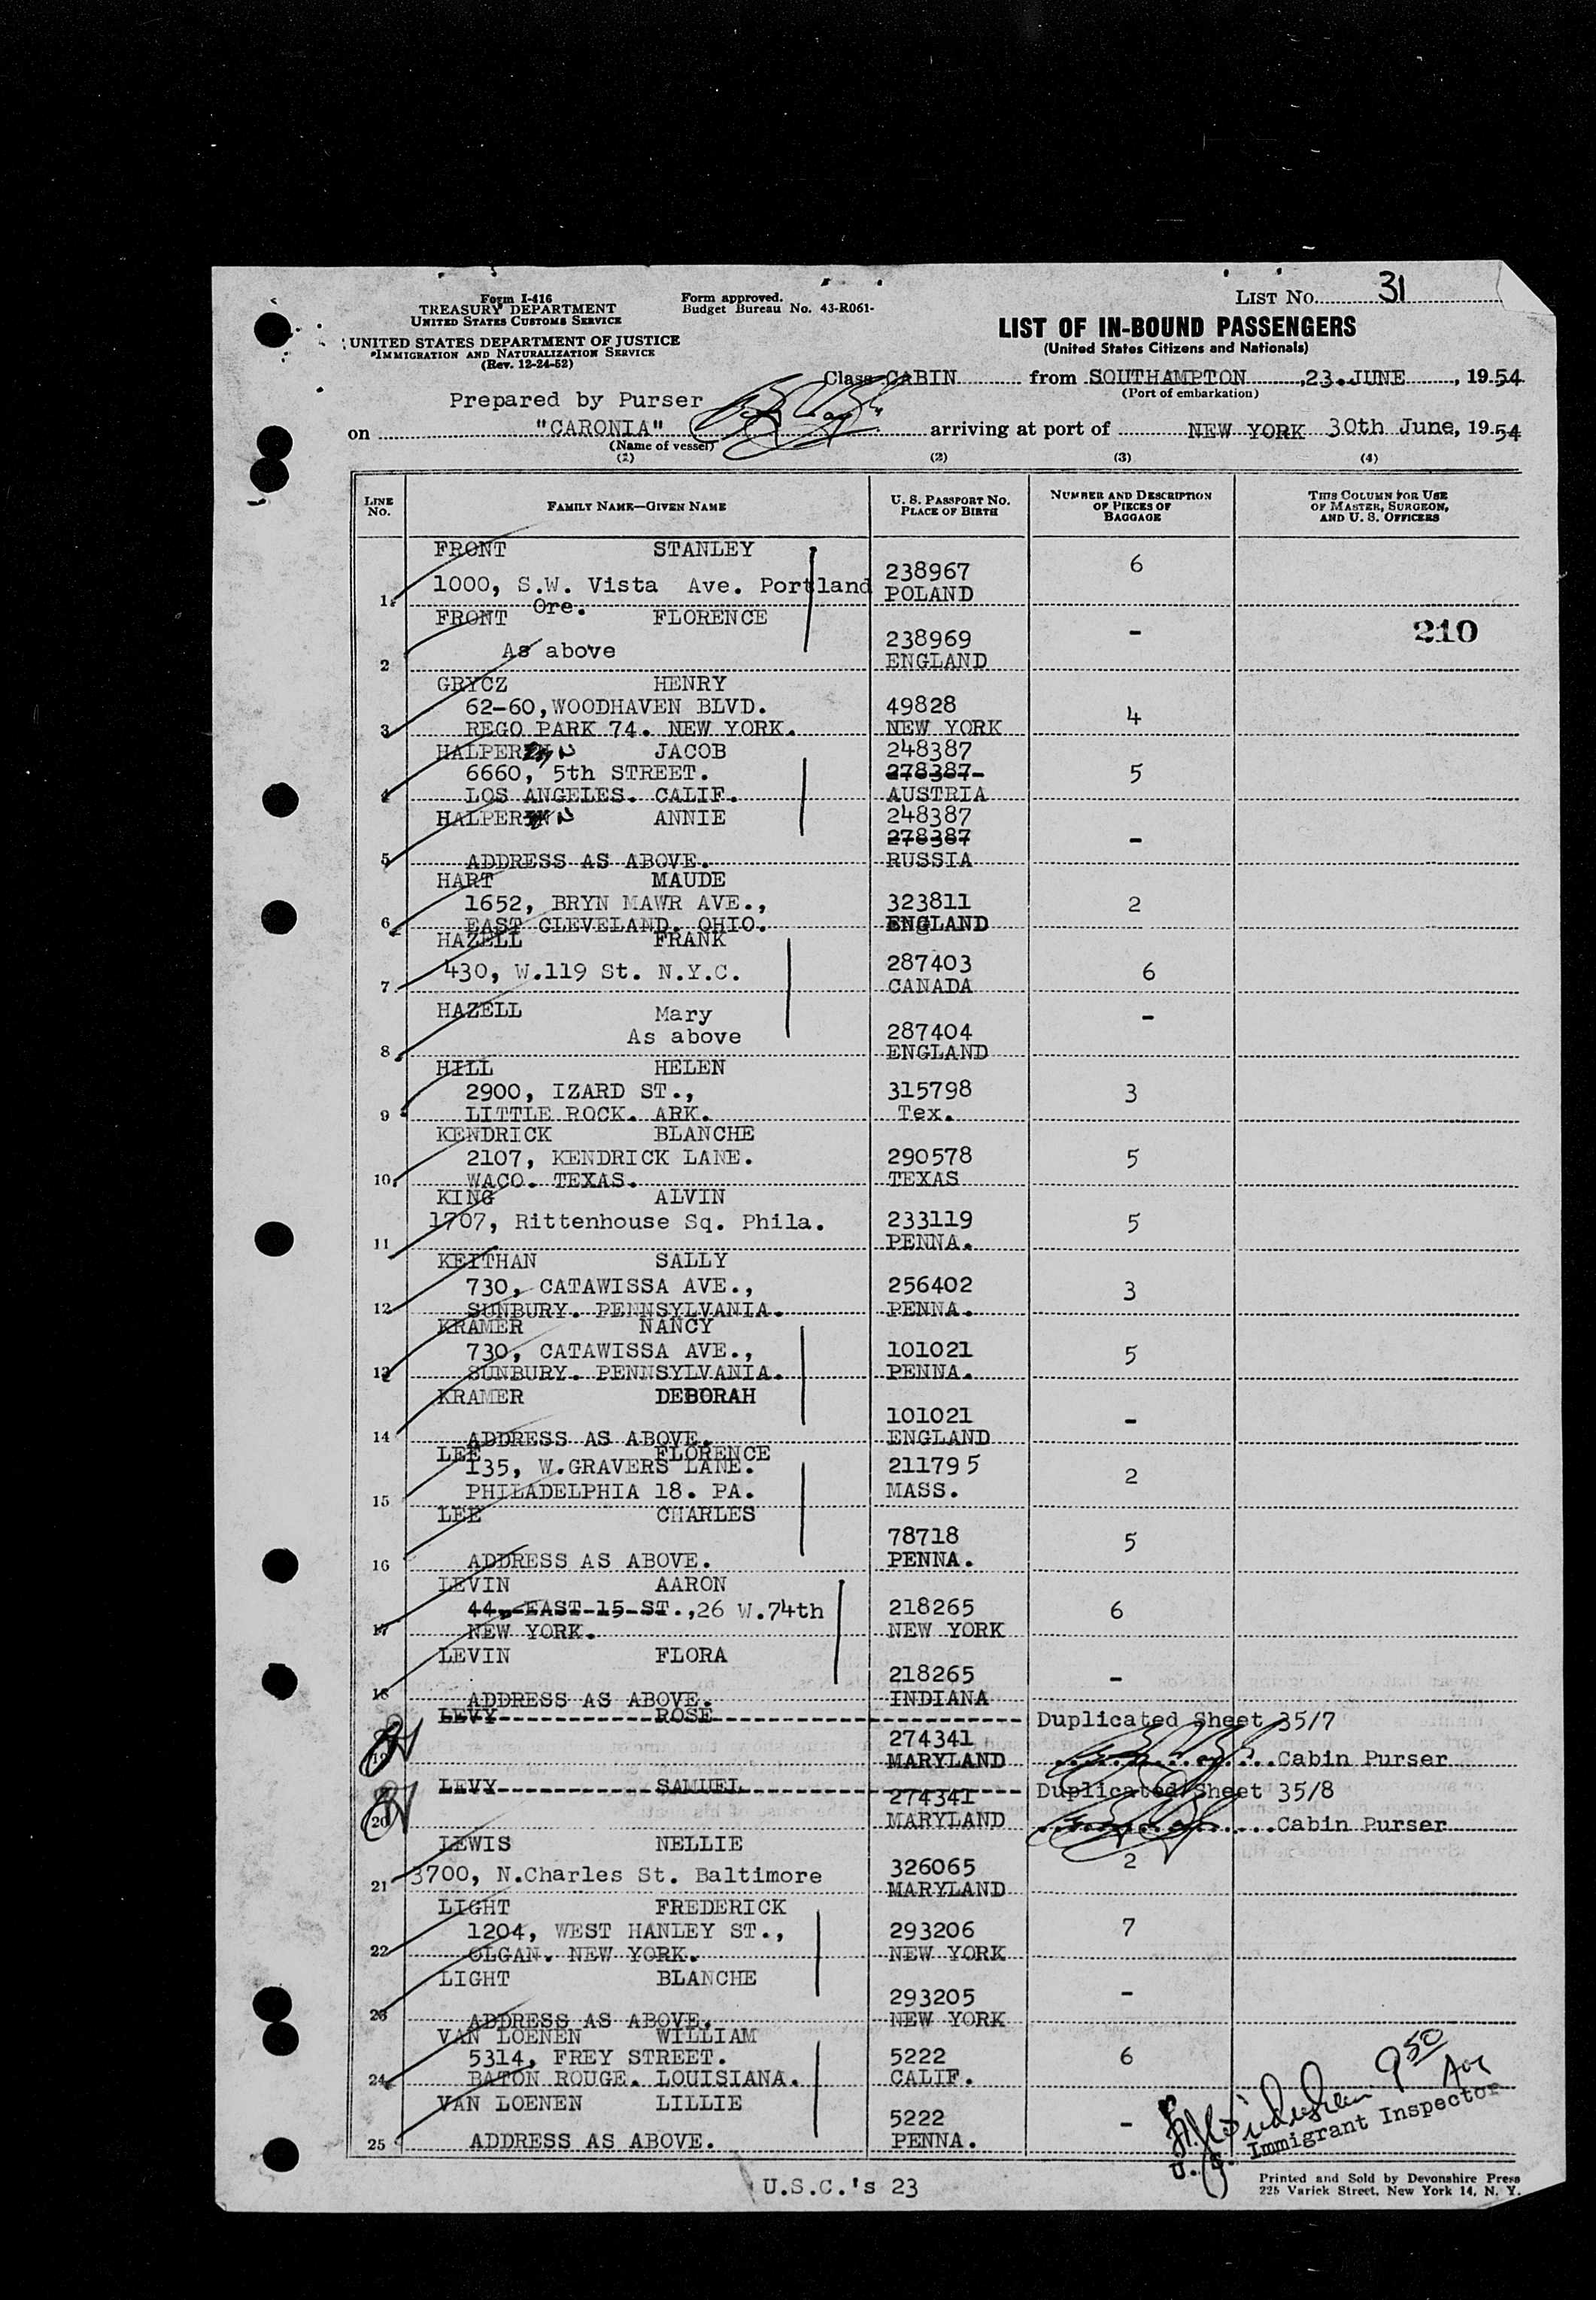 Form I-416
TREASURY DEPARTMENT
UNITED STATES CUSTOMS SERVICE
UNITED STATES DEPARTMENT OF JUSTICE
IMMIGRATION AND NATURALIZATION SERVICE
(Rev. 12-24-52)
Form approved.
Budget Bureau No. 43-R061-
LIST NO. 31
LIST OF IN-BOUND PASSENGERS
(United States Citizens and Nationals)
Class CABIN from SOUTHAMPTON, 23. JUNE, 1954
(Port of embarkation)
Prepared by Purser
on "CARONIA" arriving at port of NEW YORK 30th June, 1954
(Name of vessel)
(1) (2) (3) (4)
LINE NO.
FAMILY NAME—GIVEN NAME
U. S. PASSPORT NO. PLACE OF BIRTH
NUMBER AND DESCRIPTION OF PIECES OF BAGGAGE
THIS COLUMN FOR USE OF MASTER, SURGEON, AND U. S. OFFICERS
FRONT STANLEY
1000, S.W. Vista Ave. Portland 238967 6
1 Ore. POLAND
FRONT FLORENCE
210
As above 238969 -
2 ENGLAND
GRYCZ HENRY
62-60, WOODHAVEN BLVD. 49828 4
3 REGO PARK 74. NEW YORK. NEW YORK
HALPERN JACOB 248387
6660, 5th STREET. 278387- 5
4 LOS ANGELES. CALIF. AUSTRIA
HALPERN ANNIE 248387
278387 -
5 ADDRESS AS ABOVE. RUSSIA
HART MAUDE
1652, BRYN MAWR AVE., 323811 2
6 EAST CLEVELAND. OHIO. ENGLAND
HAZELL FRANK
430, W.119 St. N.Y.C. 287403 6
7 CANADA
HAZELL Mary -
As above 287404
8 ENGLAND
HILL HELEN
2900, IZARD ST., 315798 3
9 LITTLE ROCK. ARK. Tex.
KENDRICK BLANCHE
2107, KENDRICK LANE. 290578 5
10 WACO. TEXAS. TEXAS
KING ALVIN
1707, Rittenhouse Sq. Phila. 233119 5
11 PENNA.
KEITHAN SALLY
730, CATAWISSA AVE., 256402 3
12 SUNBURY. PENNSYLVANIA. PENNA.
KRAMER NANCY
730, CATAWISSA AVE., 101021 5
13 SUNBURY. PENNSYLVANIA. PENNA.
KRAMER DEBORAH
101021 -
14 ADDRESS AS ABOVE. ENGLAND
LEE FLORENCE
135, W.GRAVERS LANE. 211795 2
15 PHILADELPHIA 18. PA. MASS.
LEE CHARLES
78718 5
16 ADDRESS AS ABOVE. PENNA.
LEVIN AARON
44, EAST-15-ST.,26 W.74th 218265 6
17 NEW YORK. NEW YORK
LEVIN FLORA
218265 -
18 ADDRESS AS ABOVE. INDIANA
LEVY ROSE Duplicated Sheet 35/7
274341
19 MARYLAND Cabin Purser
LEVY SAMUEL Duplicated Sheet 35/8
274341
20 MARYLAND Cabin Purser
LEWIS NELLIE 2
21 3700, N.Charles St. Baltimore 326065
MARYLAND
LIGHT FREDERICK
1204, WEST HANLEY ST., 293206 7
22 OLGAN. NEW YORK. NEW YORK
LIGHT BLANCHE
293205 -
23 ADDRESS AS ABOVE. NEW YORK
VAN LOENEN WILLIAM
5314, FREY STREET. 5222 6
24 BATON ROUGE. LOUISIANA. CALIF.
VAN LOENEN LILLIE
5222 -
25 ADDRESS AS ABOVE. PENNA.
950
U. S. Immigrant Inspector
U.S.C.'s 23
Printed and Sold by Devonshire Press
225 Varick Street, New York 14, N. Y.